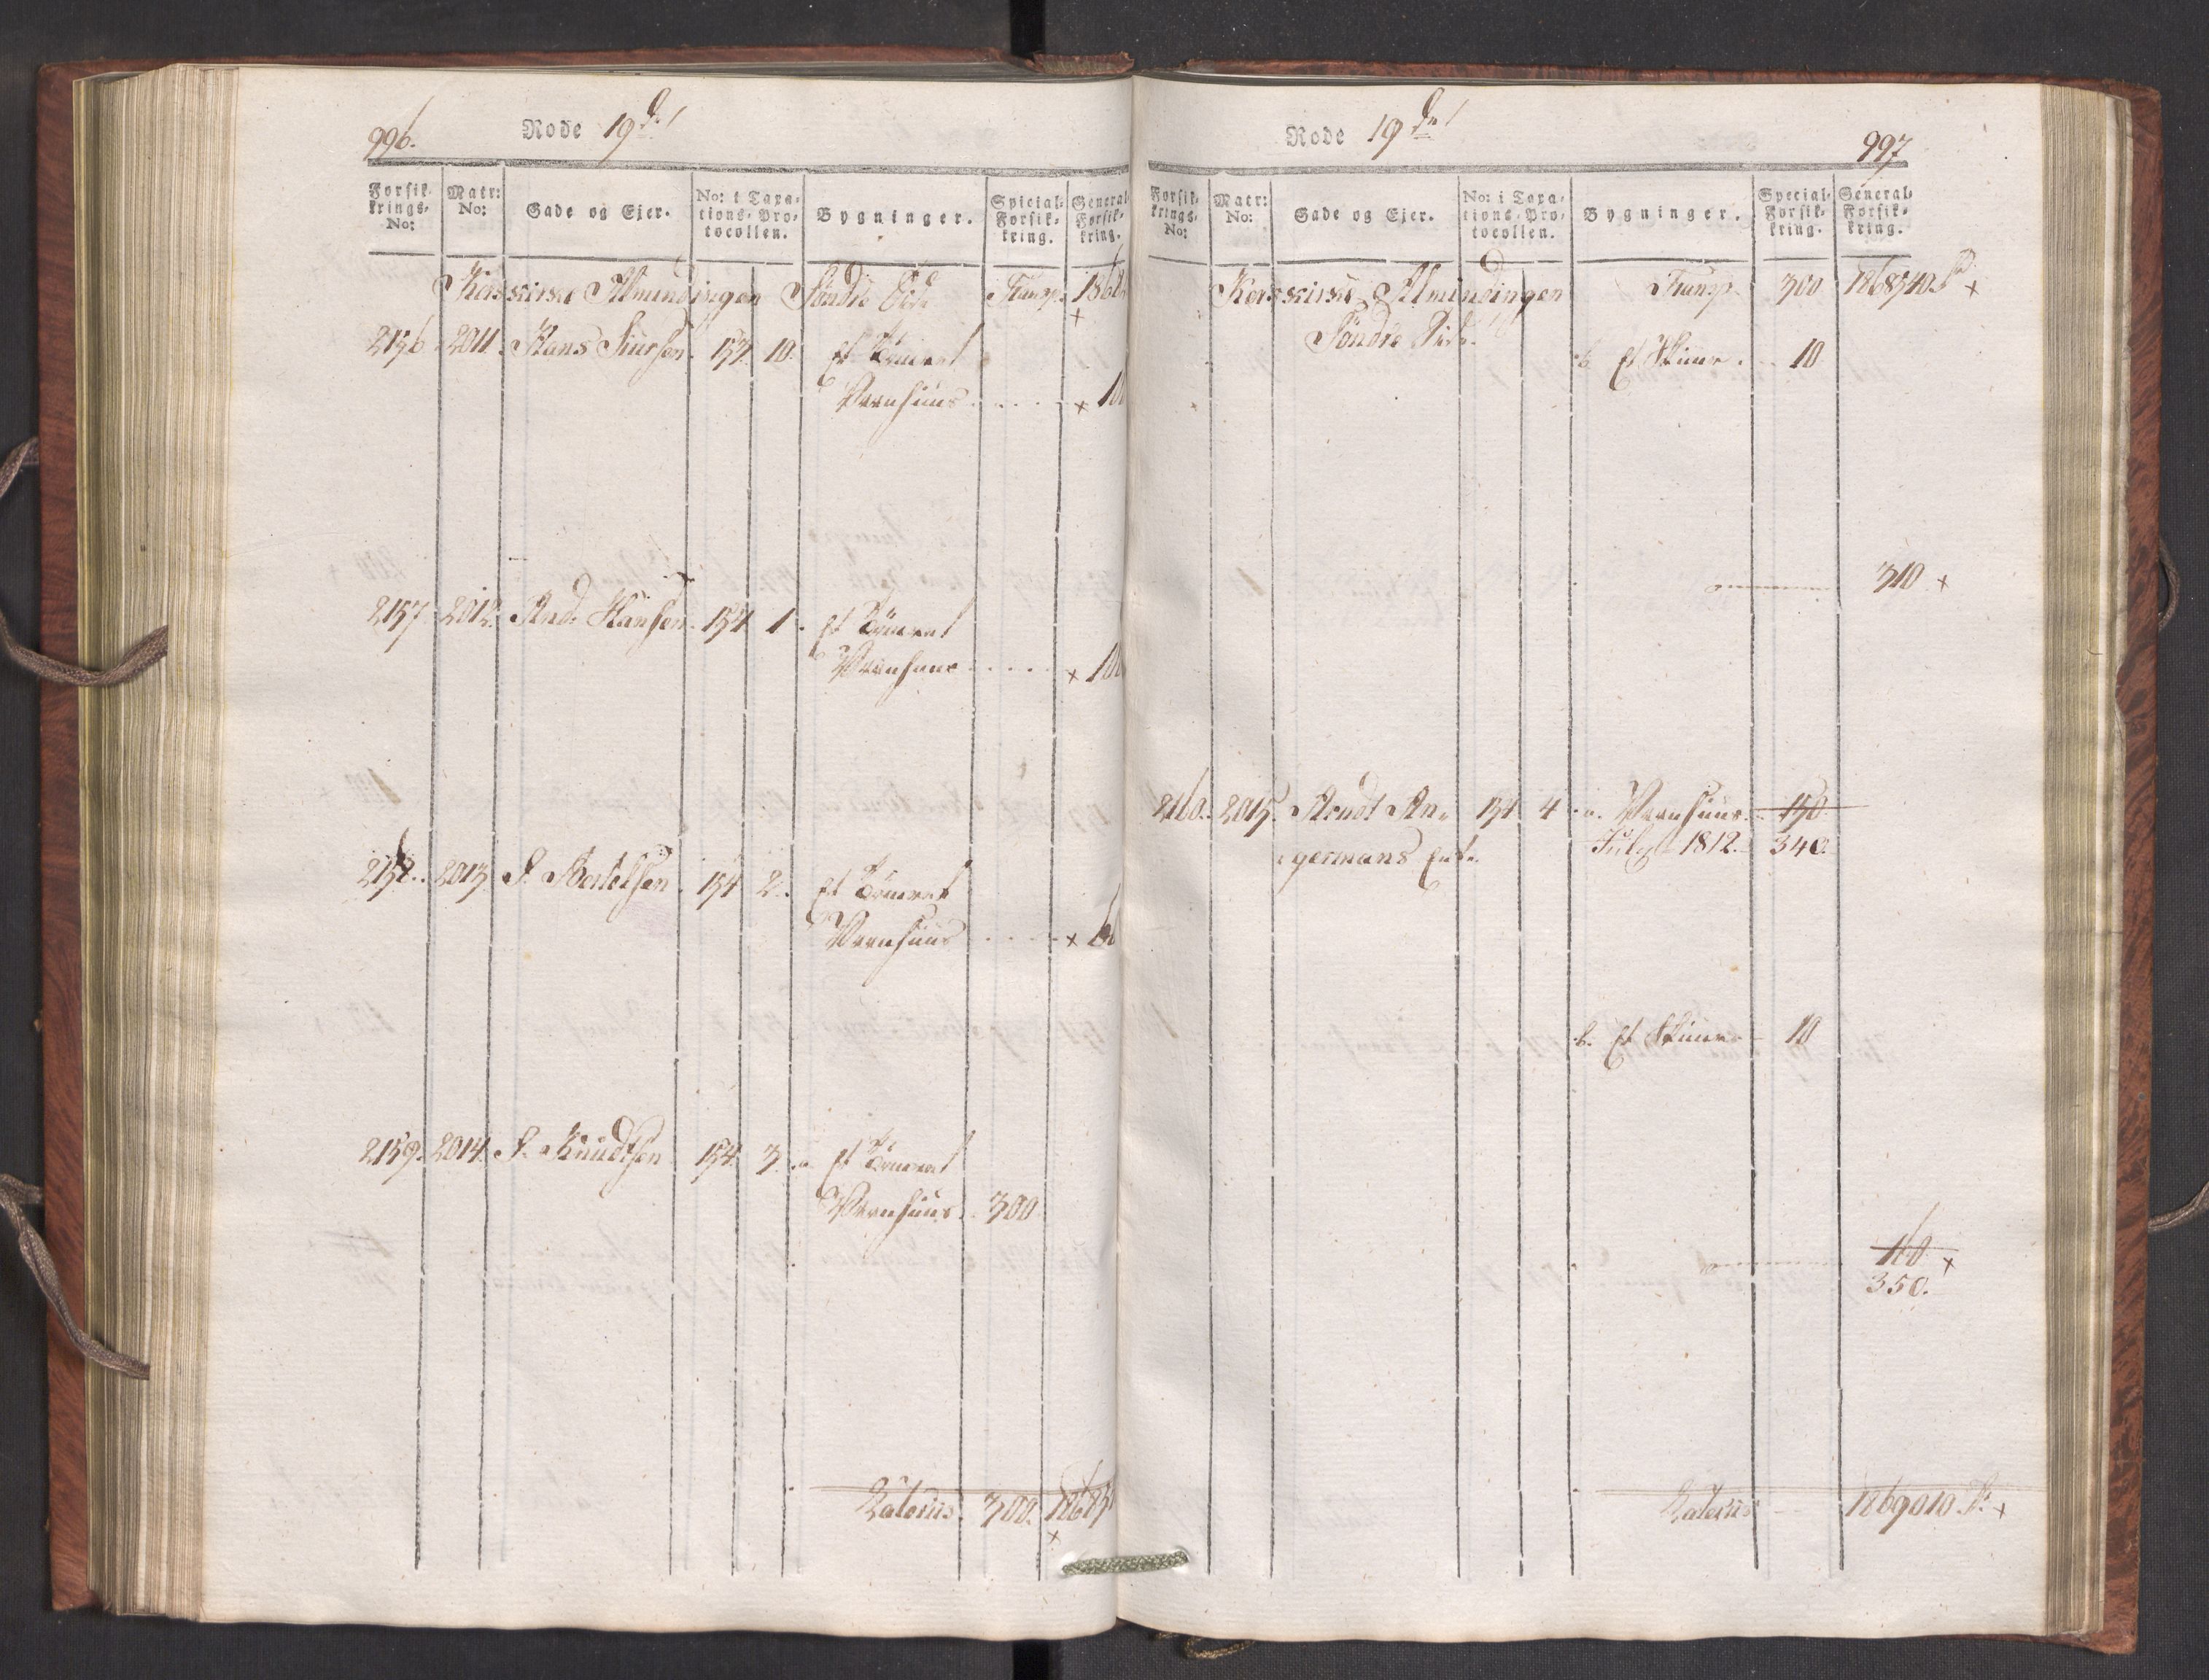 996.
Rode 19de
Forsikrings-No:
Matr: No:
Gade og Ejer.
No: i Taxations-Protocollen.
Bygninger.
Special-Forsikring.
General-Forsikring.
Korskirke Almindingen Søndre Side Transp.
2156 2011. Hans Siursen. 153. 10. Et Tømret
Vaanhuus x 10
2157 2012. And: Hansen. 154 1. Et Tømret
Vaanhuus x
2158. 2013 S. Bertelsen. 154 2. Et Tømret
Vaanhuus x
2159. 2014. S. Knudtsen 154. 3. a Et Tømret
Vaanhuus. 300
Lateris. 300.
x
Rode 19de
997
Forsikrings-No:
Matr: No:
Gade og Ejer.
No: i Taxations-Protocollen.
Bygninger.
Special-Forsikring.
General-Forsikring.
Korskirke Almindingen Transp. 300 1868340 x
Søndre Side.
b Et Skuur 10
310 x
2160. 2015. Arndt An- 154 4 a. Vaanhuus. 150
germans Enke. July 1812. 340.
b. Et Skuur 10
160 x
350.
Lateris 1869010 x